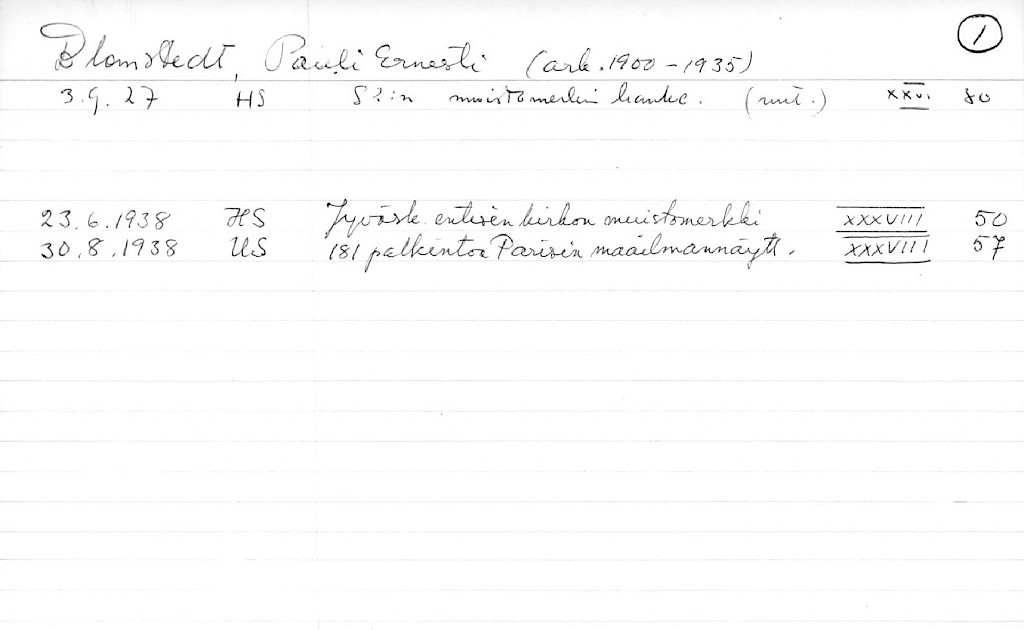 1
Blomstedt, Pauli Ernesti (ark. 1900 - 1935)
3.9.27 HS muistomerkin hanke. (mit.) XXV. 80
23.6.1938 HS Jyväsk. entisen kirkon muistomerkki XXXVIII 50
30.8.1938 US 181 palkintoa Parisin maailmannäytt. XXXVIII 57